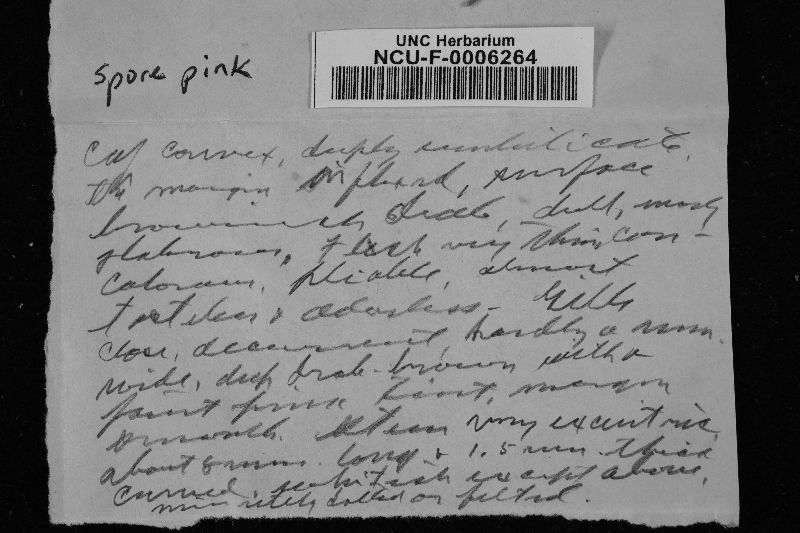 UNC Herbarium
NCU-F-0006264
spore pink
Cap convex, deeply umbilicate,
the margin inflexed, surface
brownish drab, dull, nearly
glabrous, flesh very thin, con-
colorous, pliable, almost
tasteless & odorless - Gills
close, decurrent, hardly a mm.
wide, deep drab-brown with a
faint pink tint, margin
smooth. Stem very excentric,
about 8 mm. long & 1.5 mm. thick
curved, whitish except above,
minutely felted.